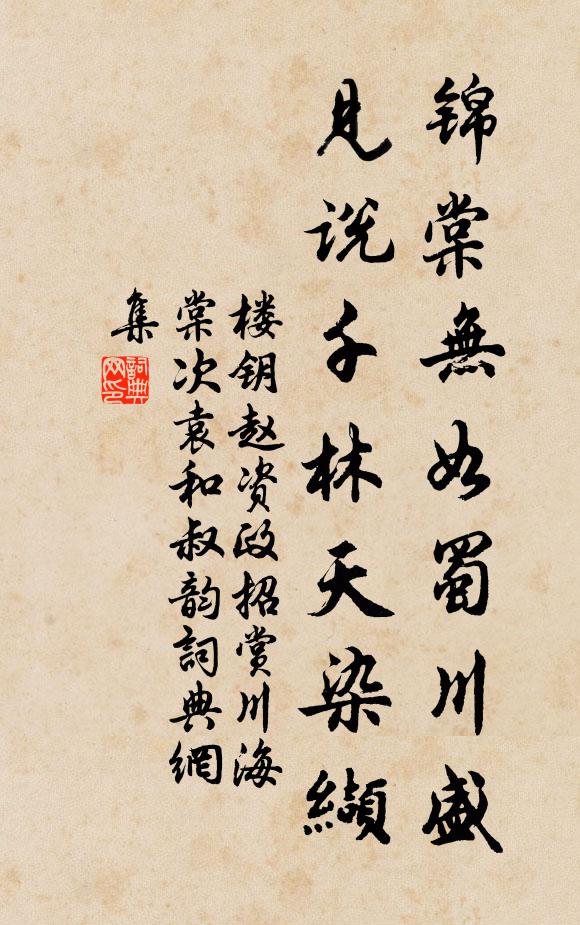 锦棠無如蜀川盛
見说千林天染纈
楼钥赵资政招赏川海
棠次袁和叔韵詞典網
集
詞典
网印